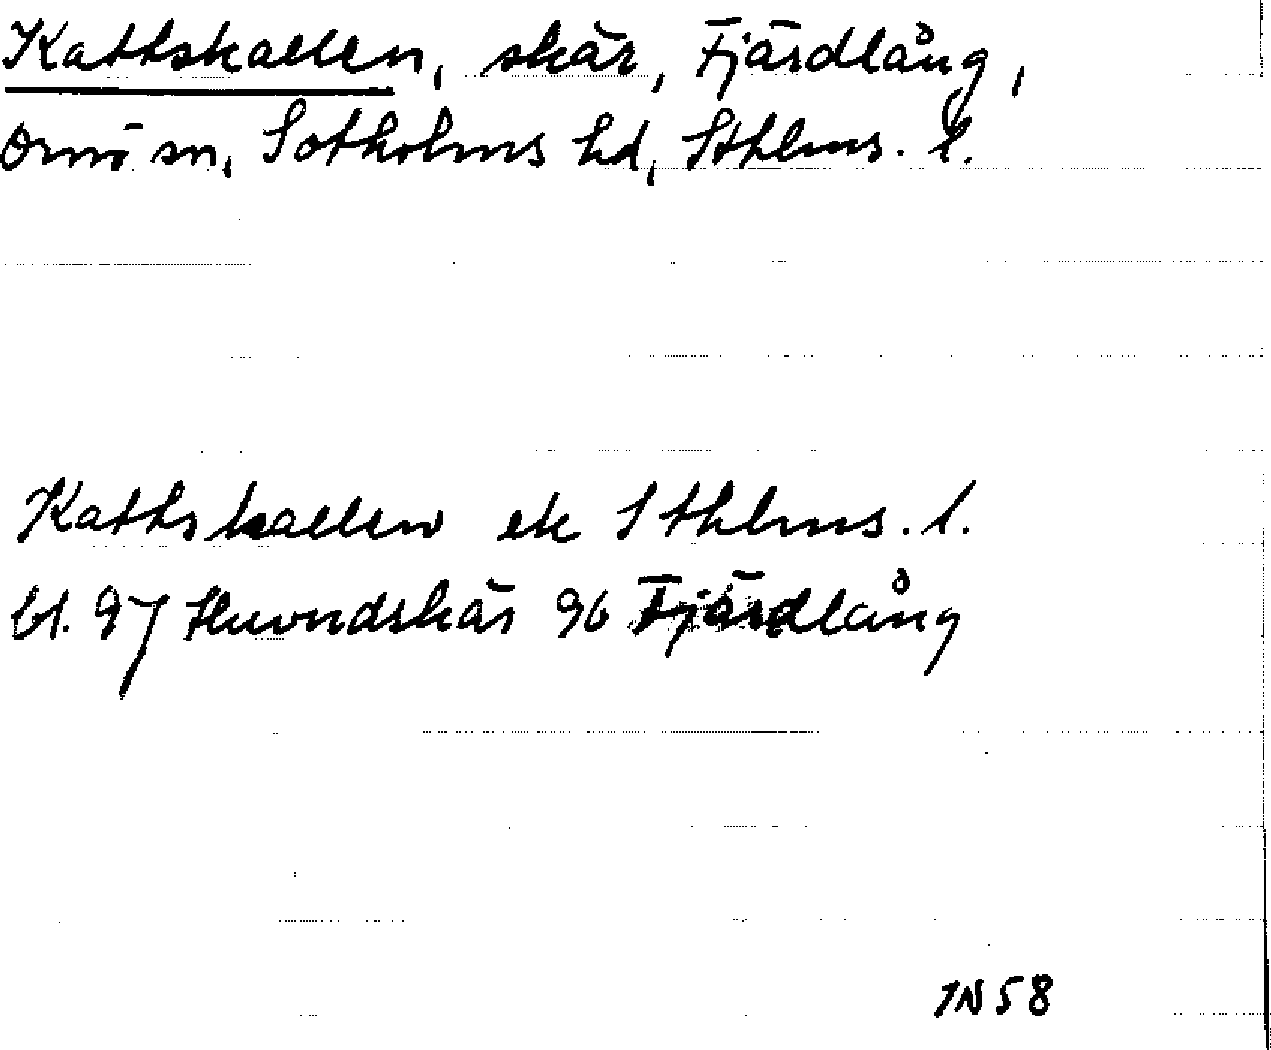 Kattskallen, skär, Fjärdlång,
Ornö sn, Sotholms hd, Sthlms. l.
Kattskallen ek Sthlms. l.
bl. 97 Huvudskär 96 Fjärdlång
IN 58